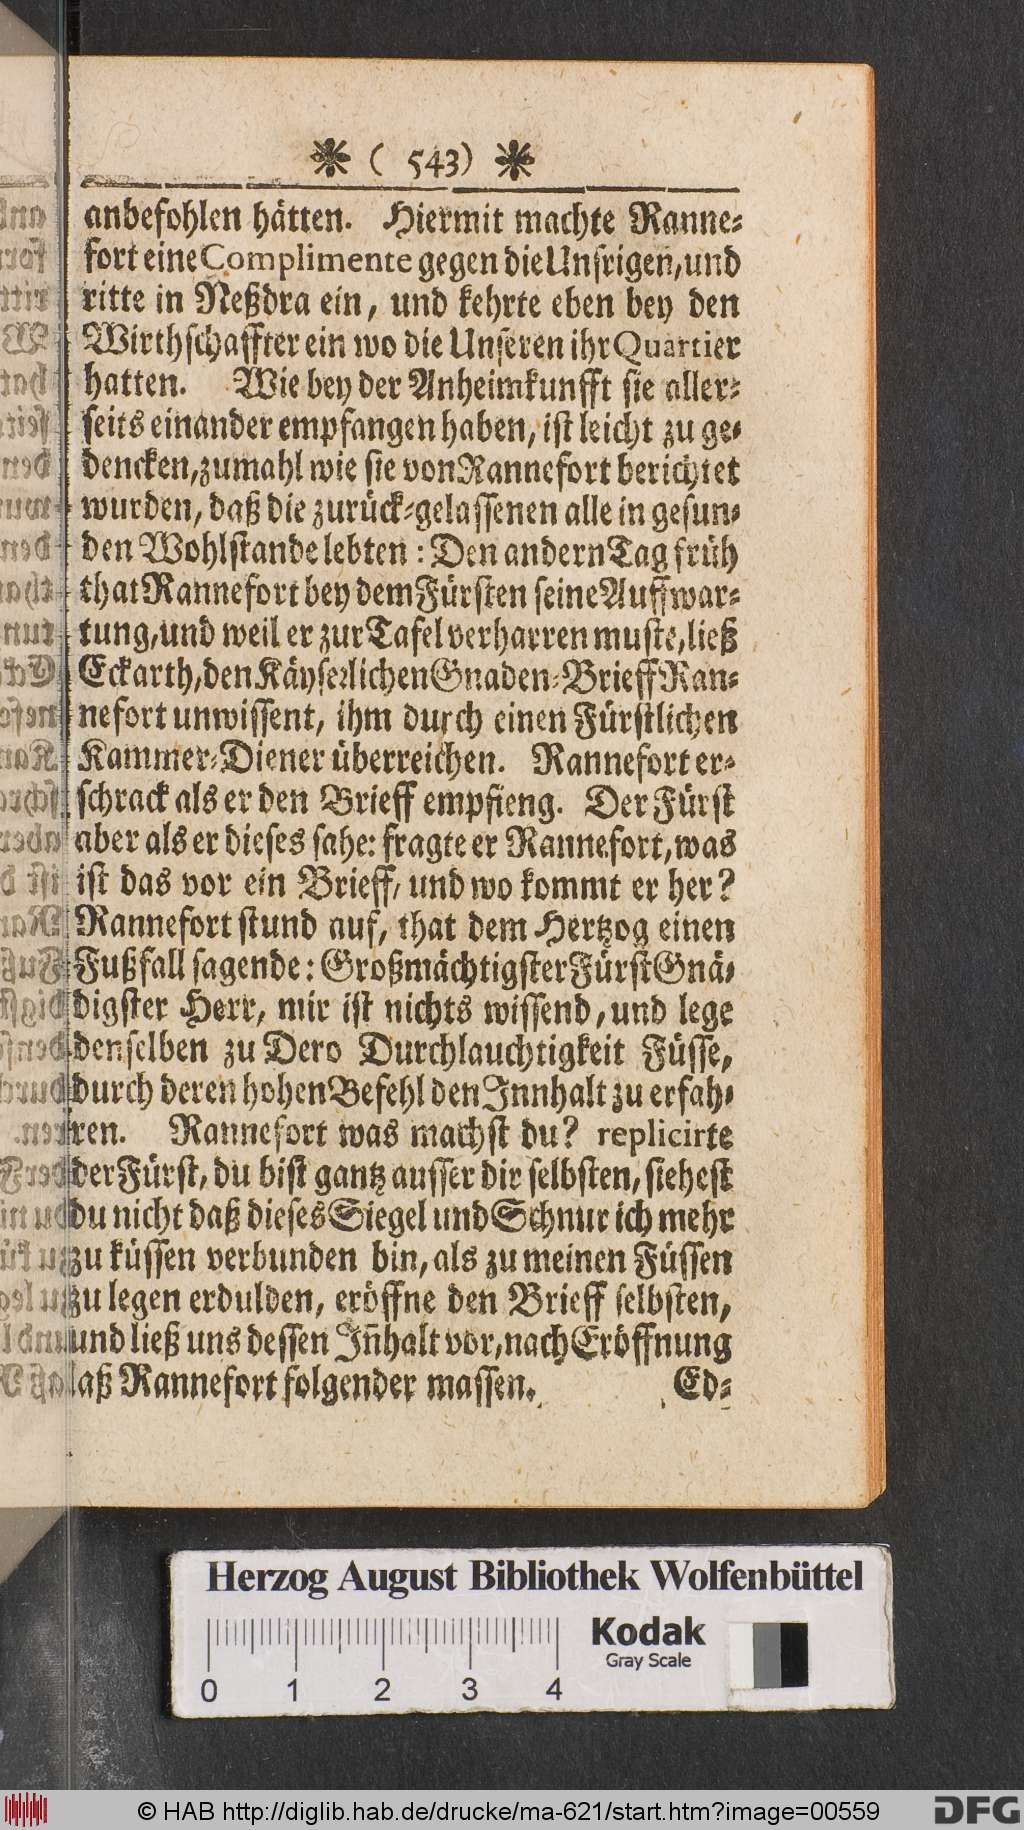 ❋ ( 543) ❋
anbefohlen hätten. Hiermit machte Ranne-
fort eine Complimente gegen die Unsrigen, und
ritte in Neßdra ein, und kehrte eben bey den
Wirthschaffter ein wo die Unseren ihr Quartier
hatten. Wie bey der Anheimkunfft sie aller-
seits einander empfangen haben, ist leicht zu ge-
dencken, zumahl wie sie von Rannefort berichtet
wurden, daß die zurück-gelassenen alle in gesun-
den Wohlstande lebten: Den andern Tag früh
that Rannefort bey dem Fürsten seine Auffwar-
tung, und weil er zur Tafel verharren muste, ließ
Eckarth, den Käyserlichen Gnaden-Brieff Ran-
nefort unwissent, ihm durch einen Fürstlichen
Kammer-Diener überreichen. Rannefort er-
schrack als er den Brieff empfieng. Der Fürst
aber als er dieses sahe: fragte er Rannefort, was
ist das vor ein Brieff, und wo kommt er her?
Rannefort stund auf, that dem Hertzog einen
Fußfall sagende: Großmächtigster Fürst Gnä-
digster Herr, mir ist nichts wissend, und lege
denselben zu Dero Durchlauchtigkeit Füsse,
durch deren hohen Befehl den Innhalt zu erfah-
ren. Rannefort was machst du? replicirte
der Fürst, du bist gantz ausser dir selbsten, siehest
du nicht daß dieses Siegel und Schnur ich mehr
zu küssen verbunden bin, als zu meinen Füssen
zu legen erdulden, eröffne den Brieff selbsten,
und ließ uns dessen Iñhalt vor, nach Eröffnung
laß Rannefort folgender massen. Ed-
Herzog August Bibliothek Wolfenbüttel
Kodak
Gray Scale
0 1 2 3 4
© HAB http://diglib.hab.de/drucke/ma-621/start.htm?image=00559
DFG